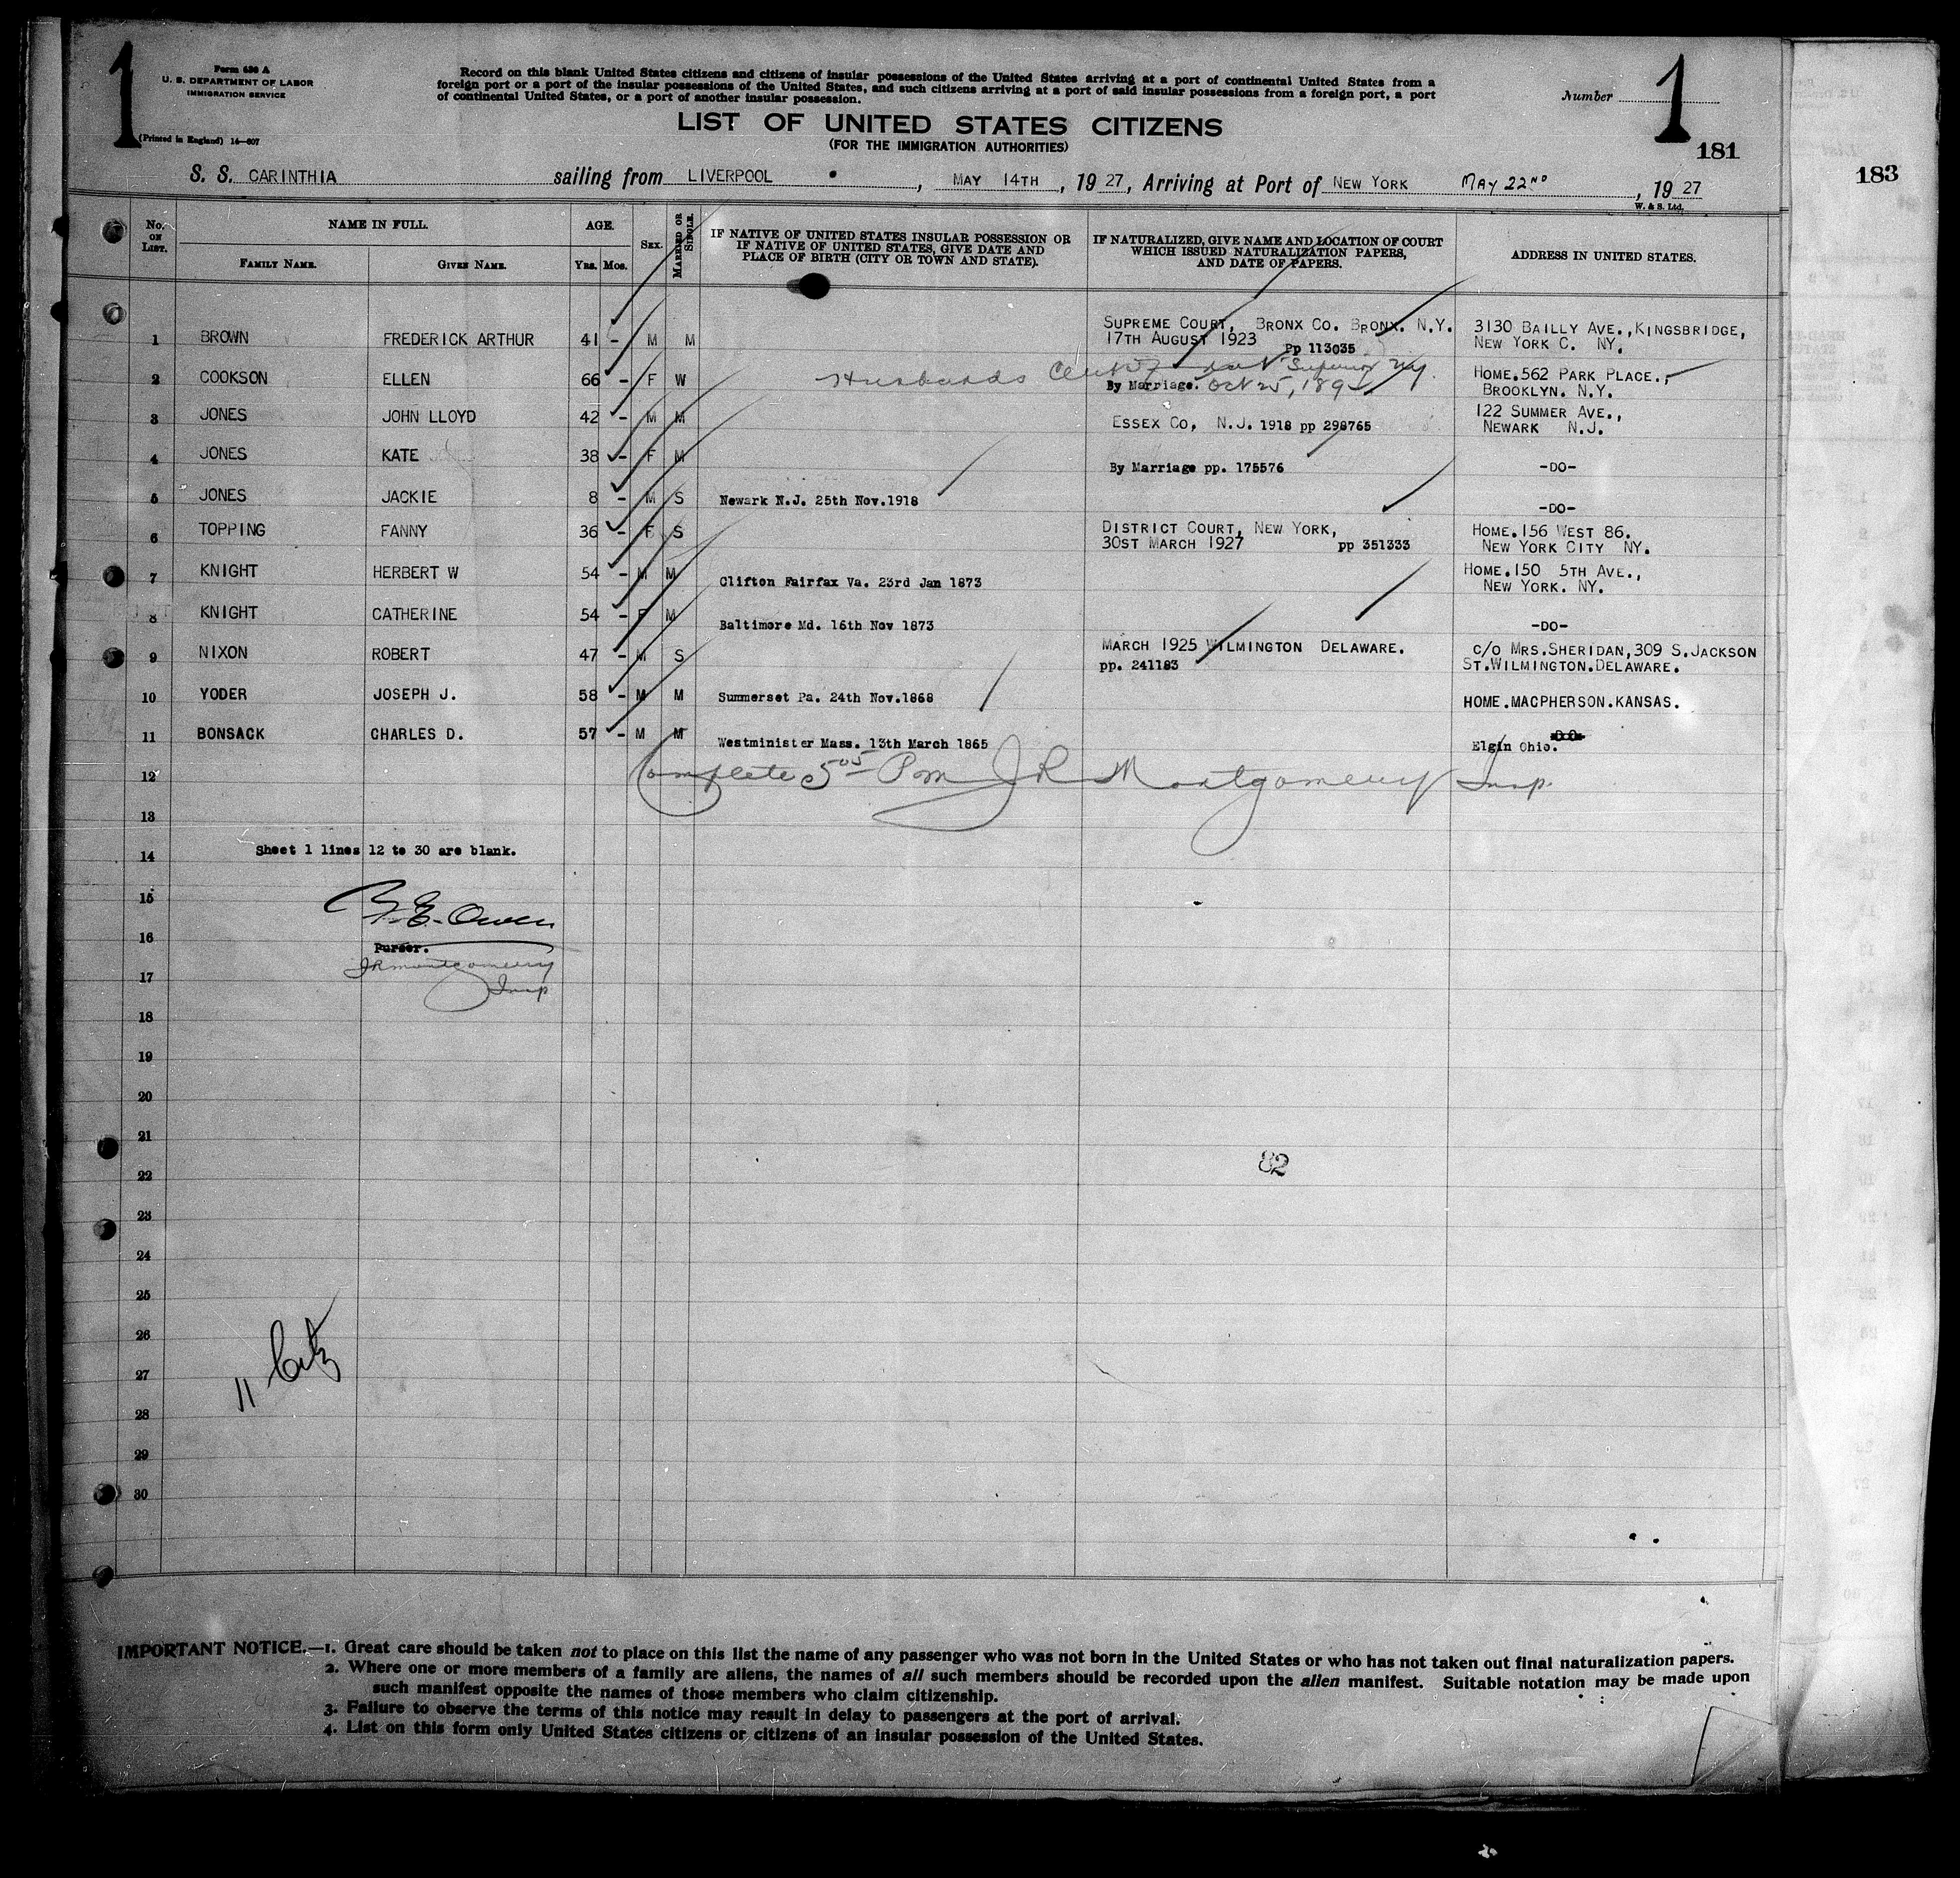 1
Form 630 A
U. S. DEPARTMENT OF LABOR
IMMIGRATION SERVICE
(Printed in England) 14—607
Record on this blank United States citizens and citizens of insular possessions of the United States arriving at a port of continental United States from a
foreign port or a port of the insular possessions of the United States, and such citizens arriving at a port of said insular possessions from a foreign port, a port
of continental United States, or a port of another insular possession.
Number 1
LIST OF UNITED STATES CITIZENS
(FOR THE IMMIGRATION AUTHORITIES)
181
183
S. S. CARINTHIA sailing from LIVERPOOL , MAY 14TH , 1927, Arriving at Port of NEW YORK MAY 22ND , 1927
W. & S. Ltd.
No. ON LIST. NAME IN FULL. FAMILY NAME. GIVEN NAME. AGE. Yrs. Mos. SEX. MARRIED OR SINGLE.
IF NATIVE OF UNITED STATES INSULAR POSSESSION OR
IF NATIVE OF UNITED STATES, GIVE DATE AND
PLACE OF BIRTH (CITY OR TOWN AND STATE).
IF NATURALIZED, GIVE NAME AND LOCATION OF COURT
WHICH ISSUED NATURALIZATION PAPERS,
AND DATE OF PAPERS.
ADDRESS IN UNITED STATES.
1 BROWN FREDERICK ARTHUR 41 - M M SUPREME COURT, BRONX CO. BRONX. N.Y. 3130 BAILLY AVE.,KINGSBRIDGE,
17TH AUGUST 1923 Pp 113035 NEW YORK C. NY.
Husbands Superior NY.
2 COOKSON ELLEN 66 - F W By Marriage. Oct 25, HOME.562 PARK PLACE.,
BROOKLYN. N.Y.
3 JONES JOHN LLOYD 42 - M M ESSEX CO, N.J. 1918 pp 298765 122 SUMMER AVE.,
NEWARK N.J.
4 JONES KATE 38 - F M By Marriage pp. 175576 -DO-
5 JONES JACKIE 8 - M S Newark N.J. 25th Nov.1918 -DO-
6 TOPPING FANNY 36 - F S DISTRICT COURT, NEW YORK, HOME.156 WEST 86.
30ST MARCH 1927 pp 351333 NEW YORK CITY NY.
7 KNIGHT HERBERT W 54 - M M Clifton Fairfax Va. 23rd Jan 1873 HOME.150 5TH AVE.,
NEW YORK. NY.
8 KNIGHT CATHERINE 54 - F M Baltimore Md. 16th Nov 1873 -DO-
9 NIXON ROBERT 47 - M S MARCH 1925 WILMINGTON DELAWARE. c/o MRS.SHERIDAN,309 S.JACKSON
pp. 241183 ST.WILMINGTON.DELAWARE.
10 YODER JOSEPH J. 58 - M M Summerset Pa. 24th Nov.1868 HOME.MACPHERSON.KANSAS.
11 BONSACK CHARLES D. 57 - M M Westminister Mass. 13th March 1865 Elgin Ohio.
12 Complete 5 05 Pm J R Montgomery Insp.
13
Sheet 1 lines 12 to 30 are blank.
14
15
E. Owen
16
Purser.
JRMontgomery
17
Insp
18
19
20
21
22
82
23
24
25
26
11 Citz
27
28
29
30
IMPORTANT NOTICE.—1. Great care should be taken not to place on this list the name of any passenger who was not born in the United States or who has not taken out final naturalization papers.
2. Where one or more members of a family are aliens, the names of all such members should be recorded upon the alien manifest. Suitable notation may be made upon
such manifest opposite the names of those members who claim citizenship.
3. Failure to observe the terms of this notice may result in delay to passengers at the port of arrival.
4. List on this form only United States citizens or citizens of an insular possession of the United States.